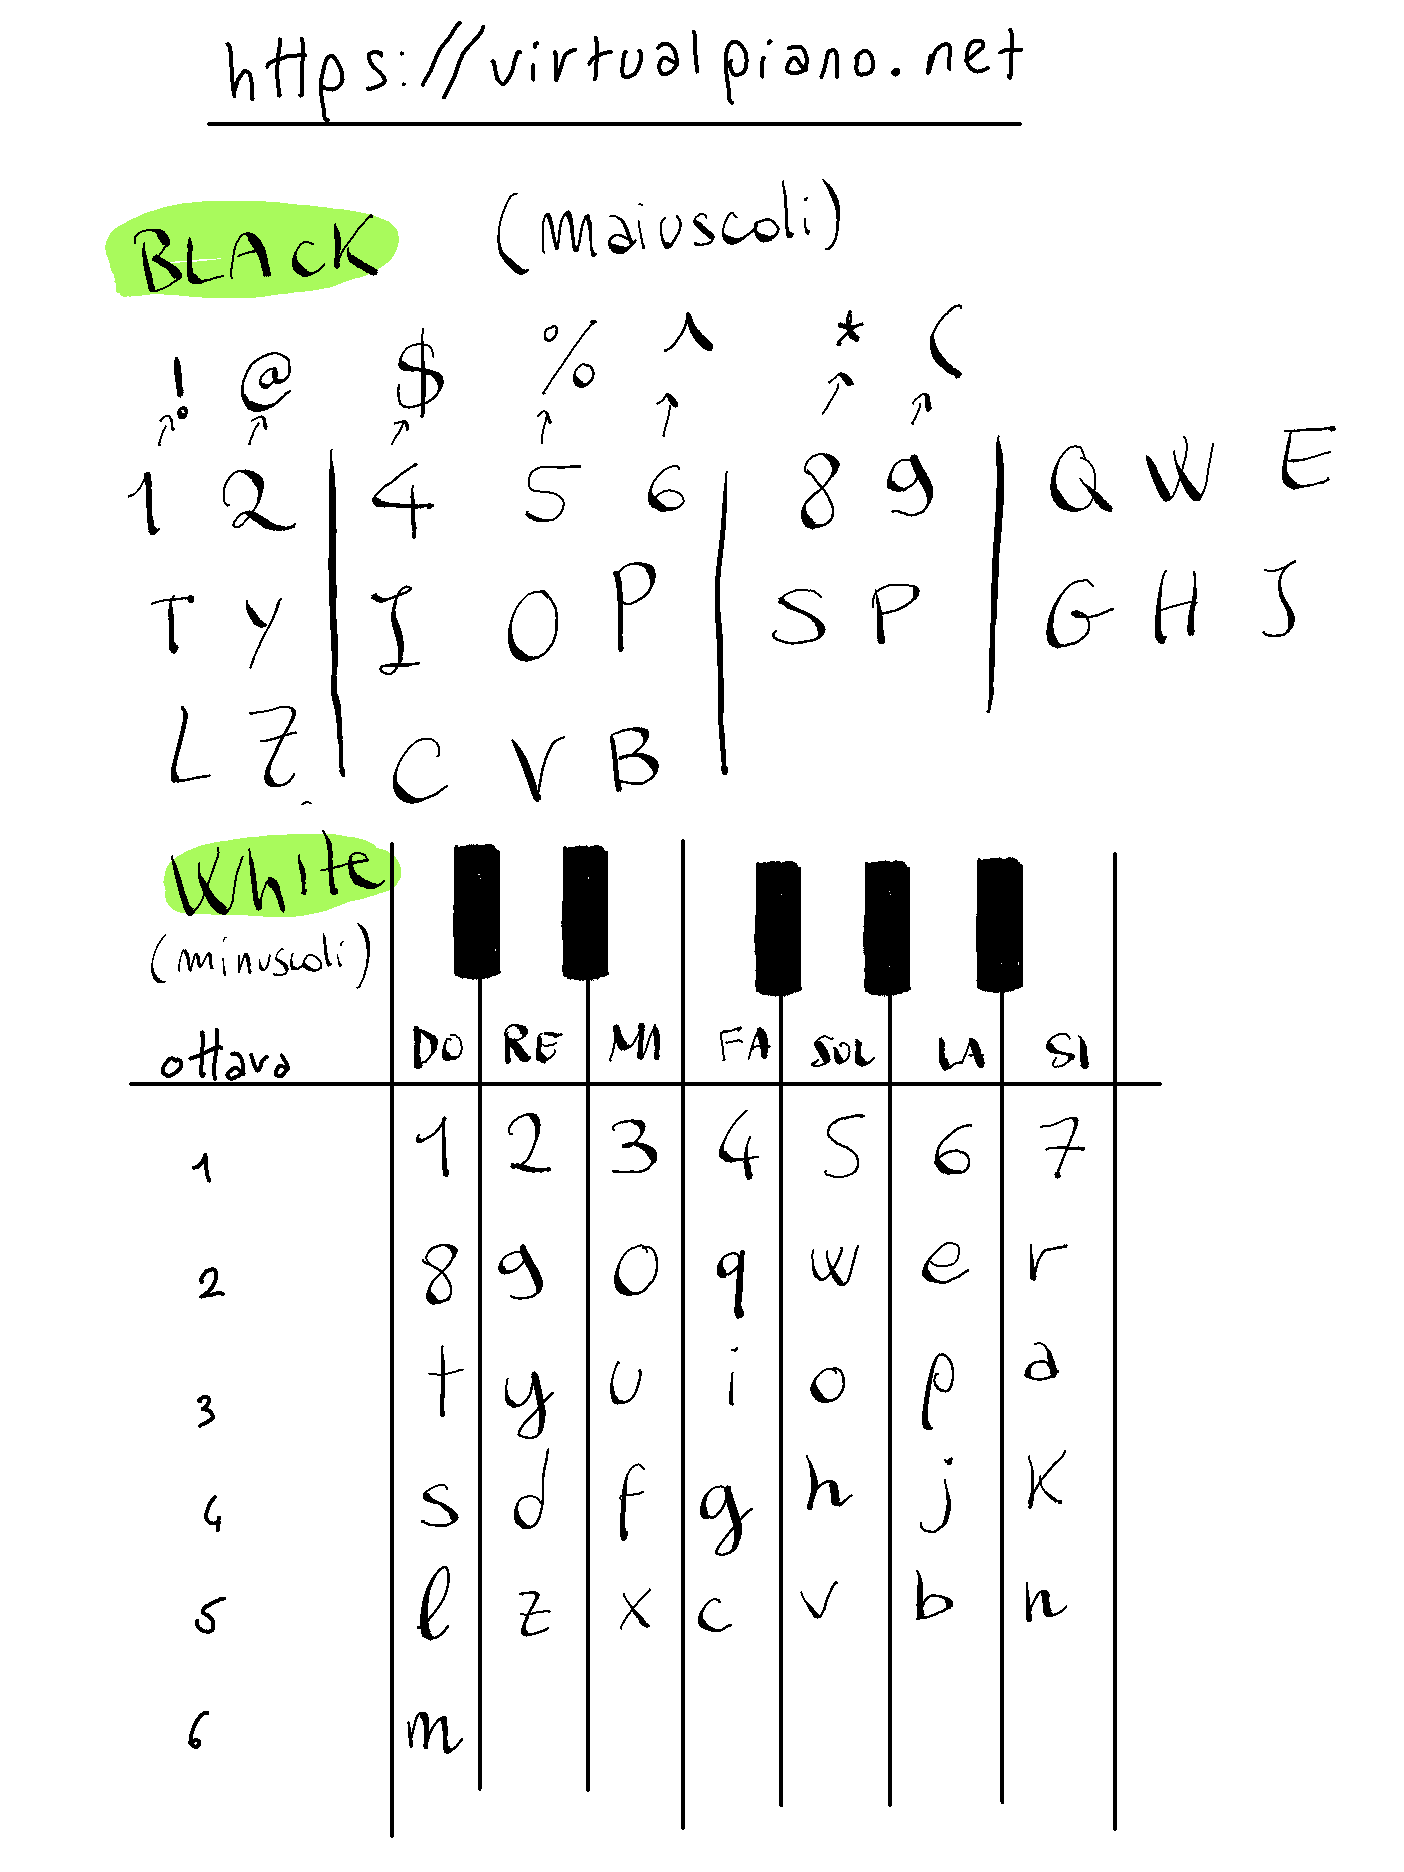 https://virtualpiano.net
BLACK (maiuscoli)
! @ $ % ^ * (
1 2 4 5 6 8 9 Q W E
T Y I O P S P G H J
L Z C V B
White
(minuscoli)
ottava DO RE MI FA SOL LA SI
1 1 2 3 4 5 6 7
2 8 9 0 q w e r
3 t y u i o p a
4 s d f g h j k
5 l z x c v b n
6 m